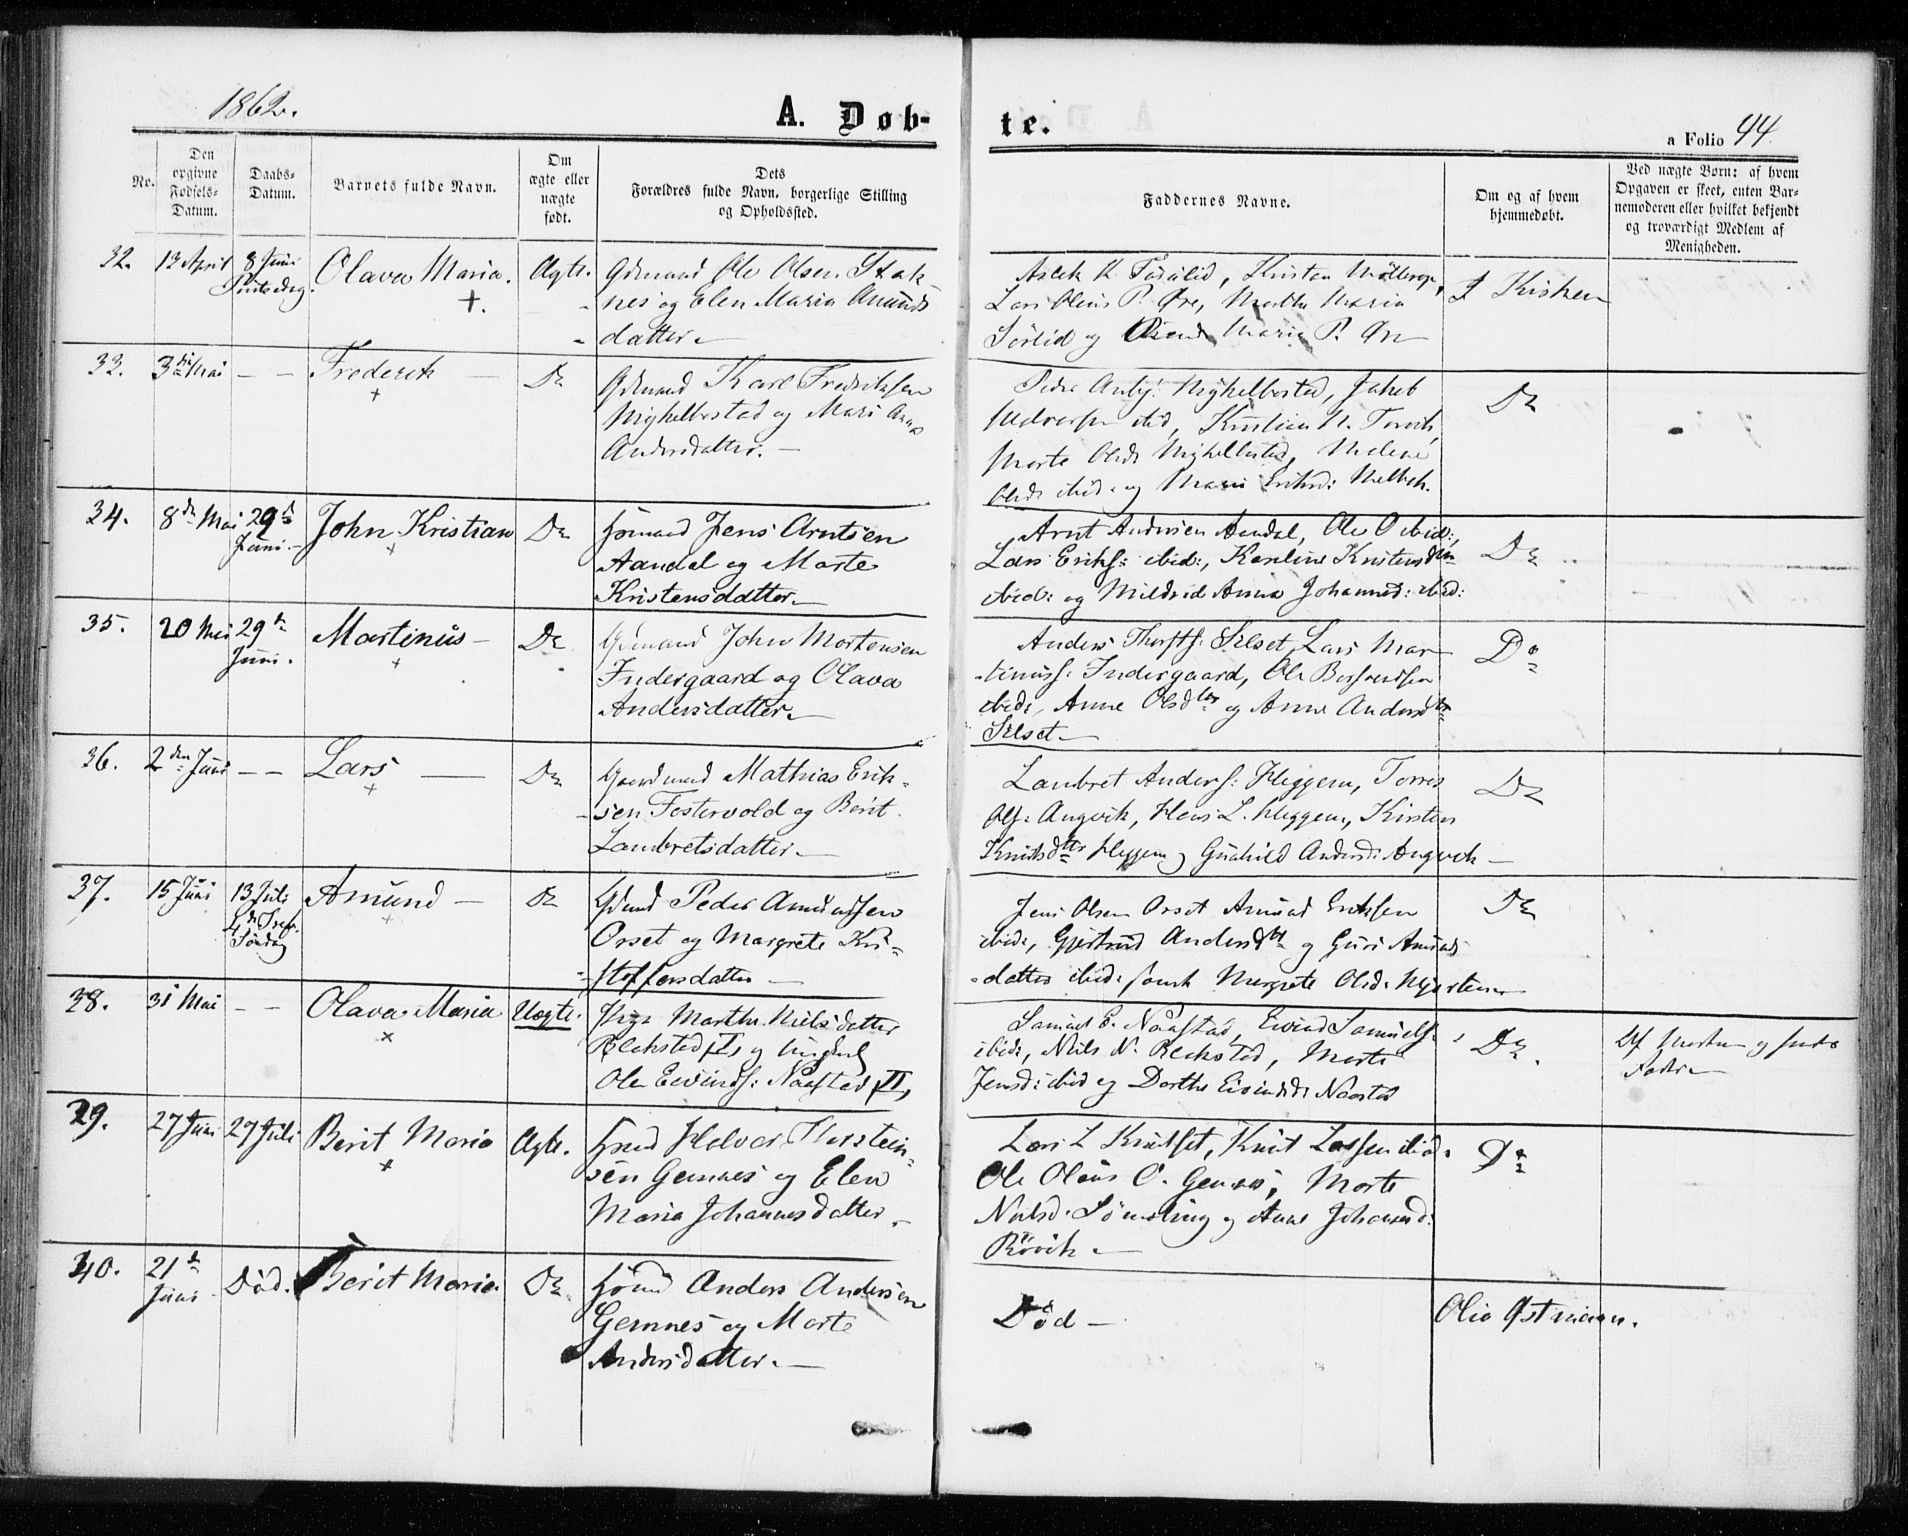 1862.
A. Døb-
te.
a Folio 44.
No.
Den
opgivne
Fødsels-
Datum.
Daabs-
Datum.
Barnets fulde Navn.
Om
ægte eller
uægte
født.
Dets
Forældres fulde Navn, borgerlige Stilling
og Opholdssted.
Faddernes Navne.
Om og af hvem
hjemmedøbt.
Ved uægte Børn: af hvem
Opgaven er skeet, enten Bar-
nemoderen eller hvilket bekjendt
og troværdigt Medlem af
Menigheden.
32. 13 April 8 Juni
Olava Maria. Ægte.
Gdmand Ole Olsen Stok-
nes og Elen Maria Amunds
datter
Kristen
Lars Olaus P. Øre, Martha Maria
Sørlid og Maria P. Øre
I Kirken
33. 3die Mai — — Frederik — Do
Gdmand Karl Fredriksen
Myhelbostad og Mari Anna
Andersdatter. —
Peder Myhelbostad, Jakob
ibid, Kristian N. Torvik,
Marte Olsd. Myhelbostad, Malene
Olsd. ibid. og Mari Eriksd: Melbek.
Do
34. 8de Mai 29de
Juni. John Kristian Do
Husmand Jens Arntsen
Aandal og Marte
Kristensdatter. —
Arnt Andersen Aandal, Ole O ibid:,
Lars Eriks: ibid:, Karoline Kristensdtr
ibid: og Mildrid Anna Johannesd: ibid:
Do
35. 20 Mai 29de
Juni. Martinus — Do
Gdmand John Mortensen
Indergaard og Olava
Andersdatter. —
Anders Thorsts: Silset, Lars Mar-
tinuss: Indergaard, Ole
ibid:, Anne Olsdtr og Anne Andersdtr
Silset. —
Do
36. 2den Juni — — Lars — Do
Gaardmand Mathias Erik-
sen Fostervold og Berit
Lambretsdatter. —
Lambret Anders: Heggem, Torres
Ols: Angvik, Hans L. Heggem, Kirsten
Knutsdtr Heggem og Gunhild Andersd: Angvik —
Do
37. 15 Juni 13 Juli
4de Tref.
Søndag
Amund — Do
Gdmd Peder Amundsen
Orset og Margrete Kri-
stoffersdatter —
Jens Olsen Orset Amund Eriksen
ibid:, Gjertrud Andersdtr og Guri Amunds-
datter ibid: samt Margrete Olsd:
Do
38. 31 Mai — — Olava Maria Uægte.
Pige Martha Nielsdatter
Bekstad (I) og Ungkarl
Ole Eivinds: Naastad (II)
Samuel E. Naastad, Eivind Samuels:
ibid:, Niels N. Bekstad, Marte
Jensd: ibid og Dorthe Eivindsd: Naastad
Do.
Af
39. 27 Juni 27 Juli Berit Maria Ægte.
Husmd Halvor Thorstein-
sen Gemnes og Elen
Maria Johannesdatter. —
Lars L Knutset, Knut Larsen ibid.
Ole Olaus O. Gemnes, Marte
Nielsd: og Anne Johannesd:
Røvik. —
Do
40. 21de
Juni Død. Berit Maria. Do
Husmd Anders Andersen
Gemnes og Marte
Andersdatter. —
Død —
Olia Østmann.